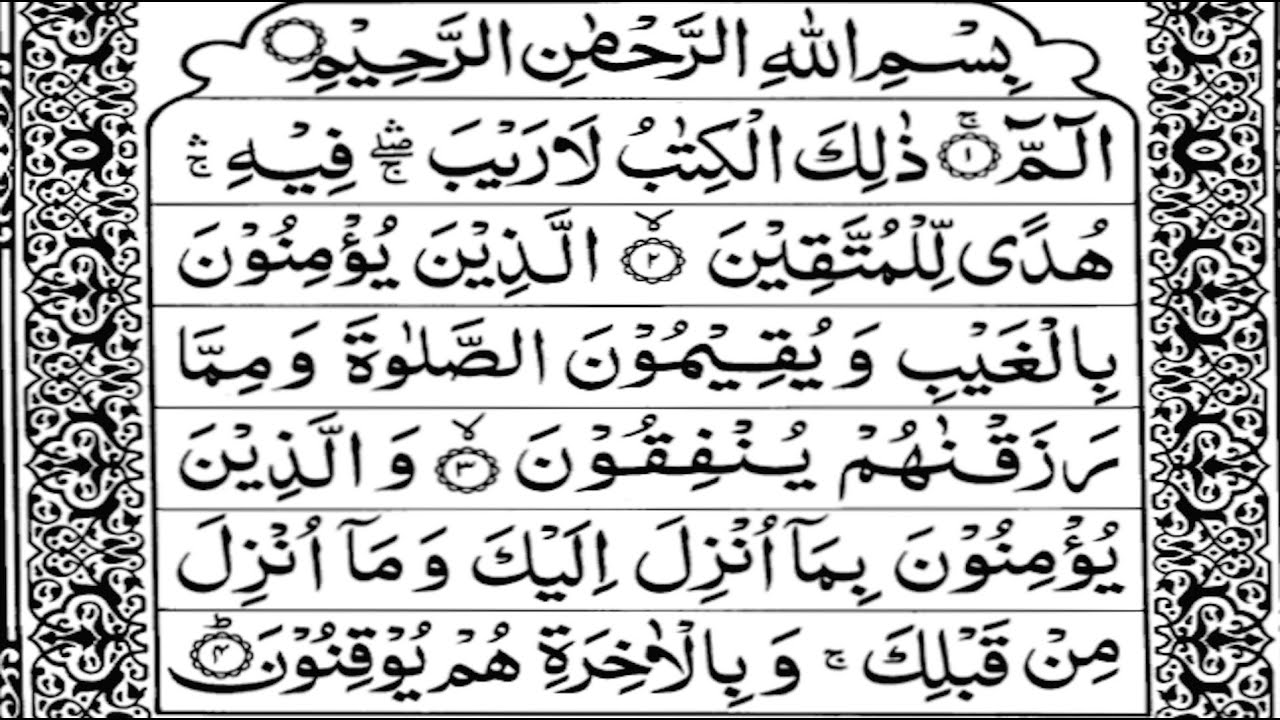 بِسْمِ اللّٰهِ الرَّحْمٰنِ الرَّحِيْمِ
الٓمّٓ ۚ‏ ﴿۱﴾ ذٰلِكَ الْكِتٰبُ لَا رَيْبَ ۛۖۚ فِيْهِ ۛۚ
هُدًى لِّلْمُتَّقِيْنَ ۙ‏ ﴿۲﴾ الَّذِيْنَ يُؤْمِنُوْنَ
بِالْغَيْبِ وَ يُقِيْمُوْنَ الصَّلٰوةَ وَ مِمَّا
رَزَقْنٰهُمْ يُنْفِقُوْنَ ۙ‏ ﴿۳﴾ وَ الَّذِيْنَ
يُؤْمِنُوْنَ بِمَاۤ اُنْزِلَ اِلَيْكَ وَ مَاۤ اُنْزِلَ
مِنْ قَبْلِكَ ۚ وَ بِالْاٰخِرَةِ هُمْ يُوْقِنُوْنَ ؕ‏ ﴿۴﴾